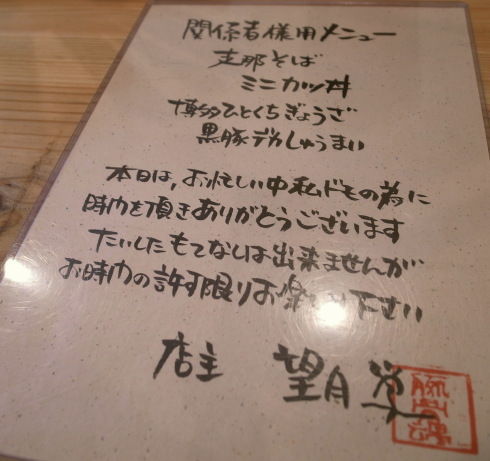 関係者様用メニュー
支那そば
ミニカツ丼
博多ひとくちぎょうざ
黒豚デカしゅうまい
本日は、お忙しい中私ドモの為に
時巾を頂きありがとうございます
たいしたもてなしは出来ませんが
お時巾の許す限りお楽しみ下さい
店主 望月